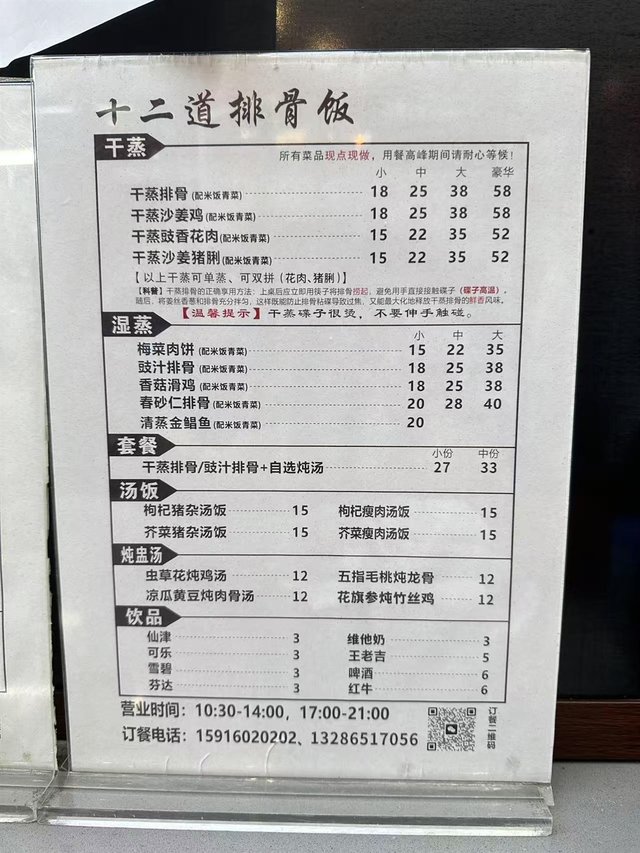 十二道排骨饭
干蒸
所有菜品现点现做，用餐高峰期间请耐心等候！
小 中 大 豪华
干蒸排骨(配米饭青菜) 18 25 38 58
干蒸沙姜鸡(配米饭青菜) 18 25 38 58
干蒸豉香花肉(配米饭青菜) 15 22 35 52
干蒸沙姜猪脷(配米饭青菜) 15 22 35 52
【以上干蒸可单蒸、可双拼（花肉、猪脷）】
【科普】干蒸排骨的正确享用方法：上桌后应立即用筷子将排骨捞起，避免用手直接接触碟子（碟子高温），
随后，将姜丝香葱和排骨充分拌匀，这样既能防止排骨粘碟导致过焦，又能最大化地释放干蒸排骨的鲜香风味。
【温馨提示】干蒸碟子很烫，不要伸手触碰。
湿蒸
小 中 大
梅菜肉饼(配米饭青菜) 15 22 35
豉汁排骨(配米饭青菜) 18 25 38
香菇滑鸡(配米饭青菜) 18 25 38
春砂仁排骨(配米饭青菜) 20 28 40
清蒸金鲳鱼(配米饭青菜) 20
套餐
小份 中份
干蒸排骨/豉汁排骨+自选炖汤 27 33
汤饭
枸杞猪杂汤饭 15 枸杞瘦肉汤饭 15
芥菜猪杂汤饭 15 芥菜瘦肉汤饭 15
炖盅汤
虫草花炖鸡汤 12 五指毛桃炖龙骨 12
凉瓜黄豆炖肉骨汤 12 花旗参炖竹丝鸡 12
饮品
仙津 3 维他奶 3
可乐 3 王老吉 5
雪碧 3 啤酒 6
芬达 3 红牛 6
营业时间：10:30-14:00，17:00-21:00
订餐电话：15916020202、13286517056
订餐二维码